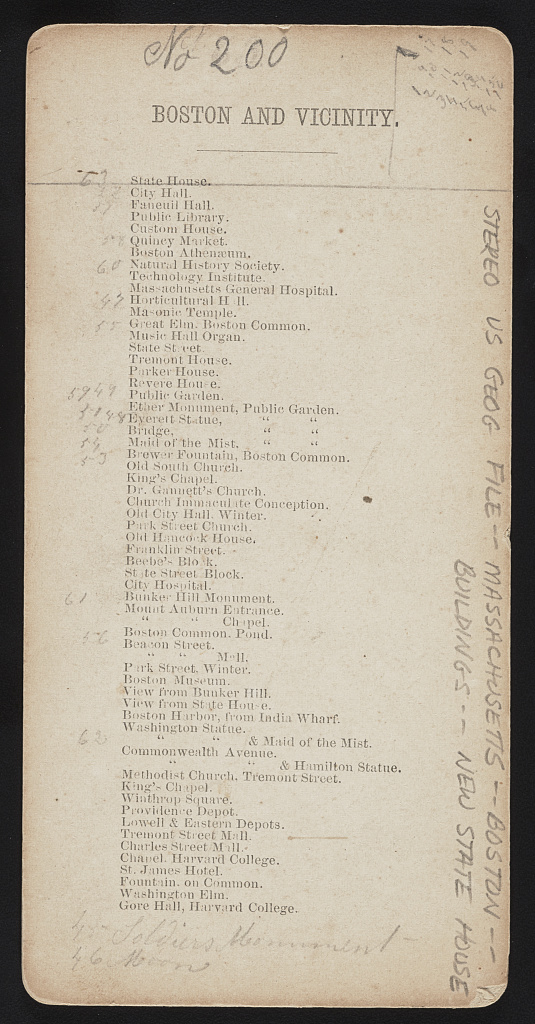 No 200
BOSTON AND VICINITY.
63 State House.
City Hall.
Faneuil Hall.
Public Library.
Custom House.
Quincy Market.
Boston Athenæum.
60 Natural History Society.
Technology Institute.
Massachusetts General Hospital.
47 Horticultural H ll.
Masonic Temple.
55 Great Elm, Boston Common.
Music Hall Organ.
State Street.
Tremont House.
Parker House.
Revere House.
5949 Public Garden.
Ether Monument, Public Garden.
Everett Statue, " "
Bridge, " "
54 Maid of the Mist, " "
53 Brewer Fountain, Boston Common.
Old South Church.
King's Chapel.
Dr. Gannett's Church.
Church Immaculate Conception.
Old City Hall, Winter.
Park Street Church.
Old Hancock House.
Franklin Street.
Beebe's Blo k.
State Street Block.
City Hospital.
61 Bunker Hill Monument.
Mount Auburn Entrance.
" " Chapel.
56 Boston Common, Pond.
Beacon Street.
" " Mall.
Park Street, Winter.
Boston Museum.
View from Bunker Hill.
View from State House.
Boston Harbor, from India Wharf.
Washington Statue.
62 " " & Maid of the Mist.
Commonwealth Avenue.
" " & Hamilton Statue.
Methodist Church, Tremont Street.
King's Chapel.
Winthrop Square.
Providence Depot.
Lowell & Eastern Depots.
Tremont Street Mall.
Charles Street Mall.
Chapel, Harvard College.
St. James Hotel.
Fountain, on Common.
Washington Elm.
Gore Hall, Harvard College.
45 Soldiers Monument
46 Moon
STEREO US GEOG FILE -- MASSACHUSETTS -- BOSTON --
BUILDINGS -- NEW STATE HOUSE